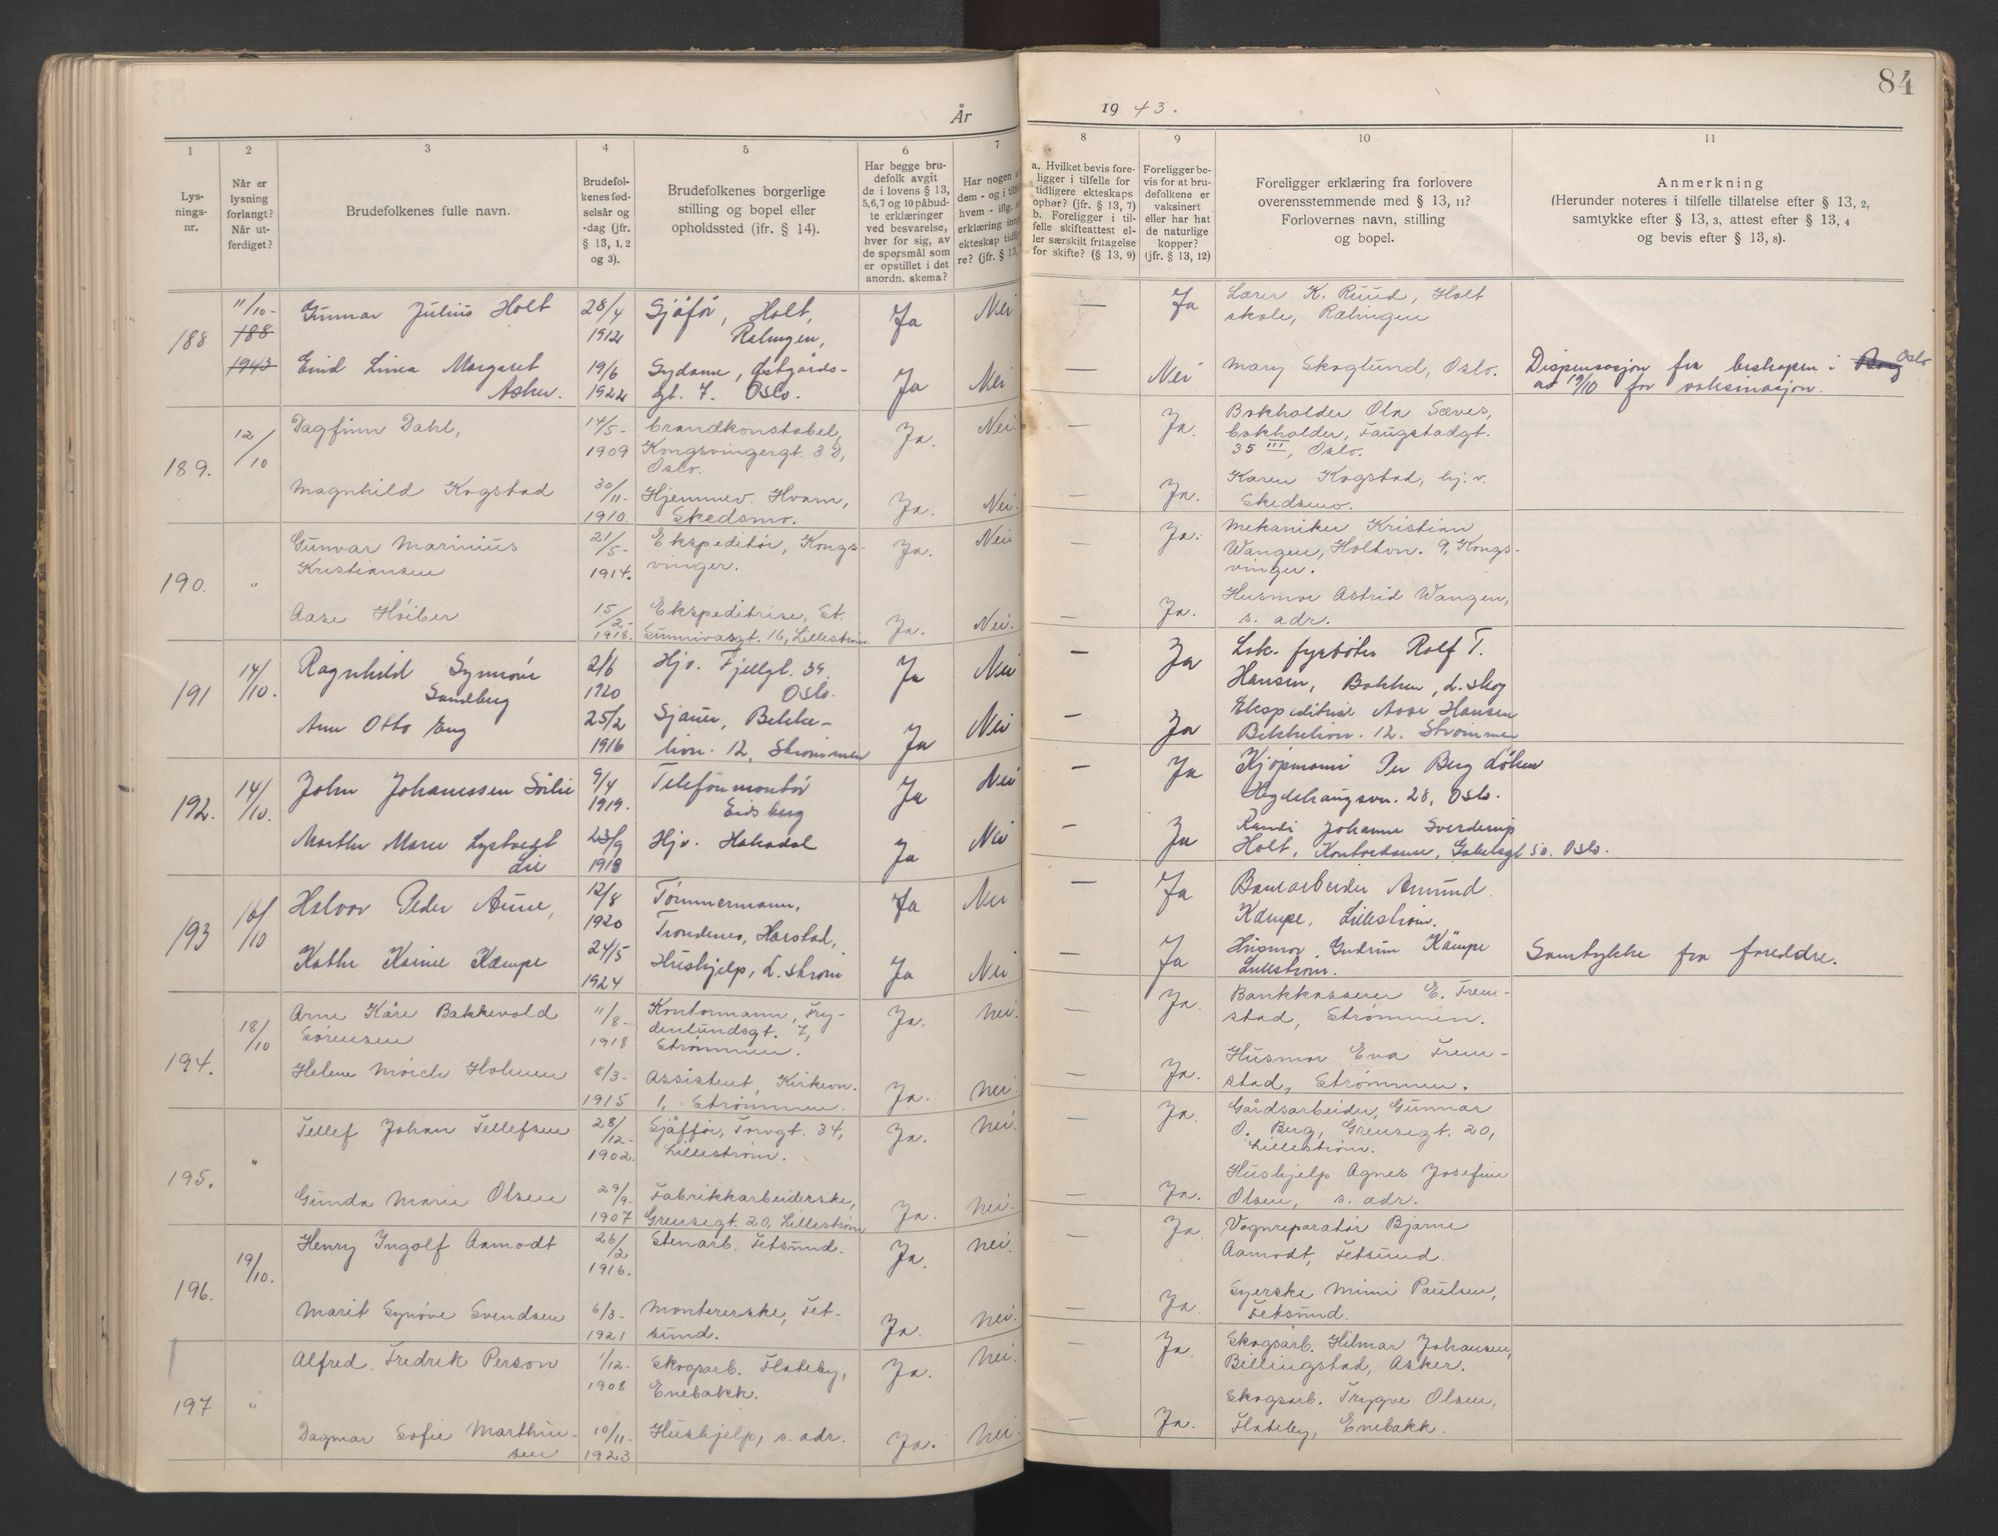 84
År 1943.
1 2 3 4 5 6 7 8 9 10 11
Lys-
nings-
nr.
Når er
lysning
forlangt?
Når ut-
ferdiget?
Brudefolkenes fulle navn.
Brudefol-
kenes fød-
selsår og
-dag (jfr.
§ 13, 1, 2
og 3).
Brudefolkenes borgerlige
stilling og bopel eller
opholdssted (jfr. § 14).
Har begge bru-
defolk avgit
de i lovens § 13,
5,6,7 og 10 påbud-
te erklæringer
ved besvarelse,
hver for sig, av
de spørsmål som
er opstillet i det
anordn. skema?
Har nogen a
dem - og i tilf
hvem - iflg.
erklæring inng
ekteskap tidlig
re? (jfr. § 13,
a. Hvilket bevis fore-
ligger i tilfelle for
tidligere ekteskaps
ophør? (jfr. § 13, 7)
b. Foreligger i til-
felle skifteattest el-
ler særskilt fritagelse
for skifte? (§ 13, 9)
Foreligger be-
vis for at bru-
defolkene er
vaksinert
eller har hat
de naturlige
kopper?
(jfr. § 13, 12)
Foreligger erklæring fra forlovere
overensstemmende med § 13, 11?
Forlovernes navn, stilling
og bopel.
Anmerkning
(Herunder noteres i tilfelle tillatelse efter § 13, 2,
samtykke efter § 13, 3, attest efter § 13, 4
og bevis efter § 13, 8).
188 11/10- 188 1943 Gunnar Julius Holt 28/4 1912 Sjåfør, Holt,
Rælingen, Ja Nei — Ja Lærer K. Ruud, Holt
skole, Rælingen
Linea Margaret
Asker. 19/6 1922 Sydame, Østgårds-
gt. 7. Oslo. Ja Nei Nei Mary Skoglund, Oslo. Dispensasjon fra biskopen i Borg Oslo
av 19/10 for vaksinasjon.
189. 12/10 Dagfinn Dahl, 14/5- 1909 Brandkonstabel,
Kongsvingergt. 3 D,
Oslo. Ja. Nei. — Ja. Bokholder Ola Sæves,
bokholder, Faugstadgt.
35 III, Oslo.
Magnhild Kogstad 30/11- 1910. Hjemmev. Hvam,
Skedsmo. Ja. Nei. — Ja. Karen Kogstad, hj.v.
Skedsmo.
190. " Gunvar Marinius
Kristiansen 21/5- 1914. Ekspeditør, Kongs-
vinger. Ja. Nei — Ja. Mekaniker Kristian
Wangen, Holtvn. 9, Kongs-
vinger.
Aase Høiber 15/2- 1918. Ekspeditrise, St.
Sunnivasgt. 16, Lillestrøm Ja. Nei. — Ja. Husmor Astrid Wangen,
s. adr.
191 14/10. Ragnhild Synnøve
Sandberg 2/6 1920 Hjv. Fjellgt. 39.
Oslo. Ja Nei — Ja Lok. fyrbøter Rolf T.
Hansen, Bakken, L.skog
Arne Otto Eng 25/2 1916 Sjauer, Bekke-
livn. 12, Strømmen Ja Nei — Ja Ekspeditrise Aase Hansen
Bekkelivn. 12. Strømmen
192. 14/10. John Johanssen Sørlie 9/4 1919. Telefonmontør
Eidsberg Ja Nei — Ja Kjøpmann Per Berg Løken
Hegdehaugsvn. 28, Oslo.
Marthe Marie Lystvedt
Lie 23/9 1918 Hjv. Hakadal Ja Nei — Ja Randi Johanne Sverdrup
Holt, Kontordame, Gabelsgt 50. Oslo.
193 16/10 Halvor Peder Aune, 12/8 1920 Tømmermann,
Trondenes, Harstad, Ja Nei — Ja Banearbeider Amund
Kæmpe, Lillestrøm.
Kathe Kæmpe 24/5 1924 Hushjelp, L.strøm Ja Nei Ja Husmor Gudrun Kæmpe
Lillestrøm. Samtykke fra foreldre.
194. 18/10 Arne Kåre Bakkevold
Sørensen 11/8- 1918 Kontormann, Fry-
denlundsgt. 7,
Strømmen. Ja. Nei. — Ja. Bankkasserer E. Trem-
stad, Strømmen.
Helene Mørch Holmen 8/3- 1915 Assistent, Kirkevn.
1, Strømmen. Ja. Nei. — Ja. Husmor Eva Trem-
stad, Strømmen.
195. " Tellef Johan Tellefsen 28/12- 1902. Sjåfør, Torvgt. 34,
Lillestrøm. Ja. Nei. — Ja. Gårdsarbeider, Gunnar
O. Berg, Grensegt. 20,
Lillestrøm.
Gunda Marie Olsen 29/9- 1907 Fabrikkarbeiderske,
Grensegt. 20, Lillestrøm Ja. Nei. — Ja. Hushjelp Agnes Josefine
Olsen, s. adr.
196. 19/10. Henry Ingolf Aamodt 26/2 1916. Stenarb. Fetsund. Ja. Nei. — Ja Vognreparatør Bjarne
Aamodt, Fetsund.
Marit Synøve Svendsen 6/3- 1921 Montererske, Fet-
sund. Ja. Nei. — Ja. Syerske Mimi Paulsen,
Fetsund.
197 " Alfred Fredrik Person 1/12- 1908 Skogsarb. Flateby,
Enebakk. Ja. Nei — Ja Skogsarb. Hilmar Johansen,
Billingstad, Asker.
Dagmar Sofie Marthin-
sen 10/11- 1923 Hushjelp, s. adr. Ja. Nei. — Ja. Skogsarb. Trygve Olsen,
Flateby, Enebakk.